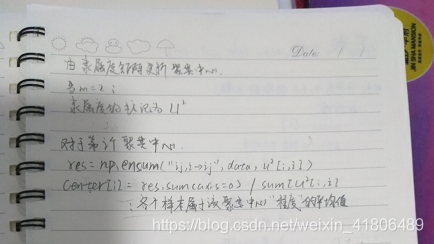 Date: / /
由隶属度矩阵更新聚类中心.
当m=2;
隶属度的标识为 U²
对于第i个聚类中心.
res=np.einsum("ij,i->ij", data, u²[:,i])
center[i]= res.sum(axis=0) / sum(u²[:,i])
:各个样本属于该聚类中心 程度的平均值
https://blog.csdn.net/weixin_41806489
JIN SHA MANSION